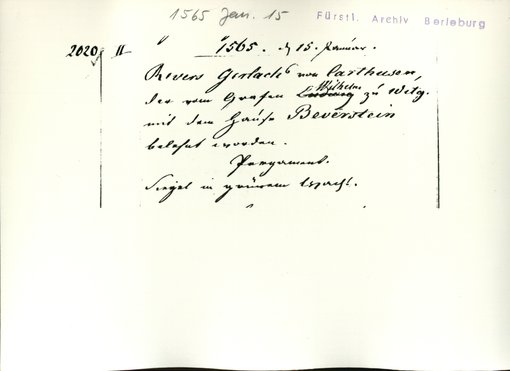 1565 Jan. 15
Fürstl. Archiv Berleburg
2020 II " " 1565. d 15. Januar.
Revers Gerlachs von Carthusen,
Wilhelm
der vom Grafen Ludwig zu Witg.
mit dem Hause Beverstein
belehnt worden.
Pergament.
Siegel in grünem Wachs.